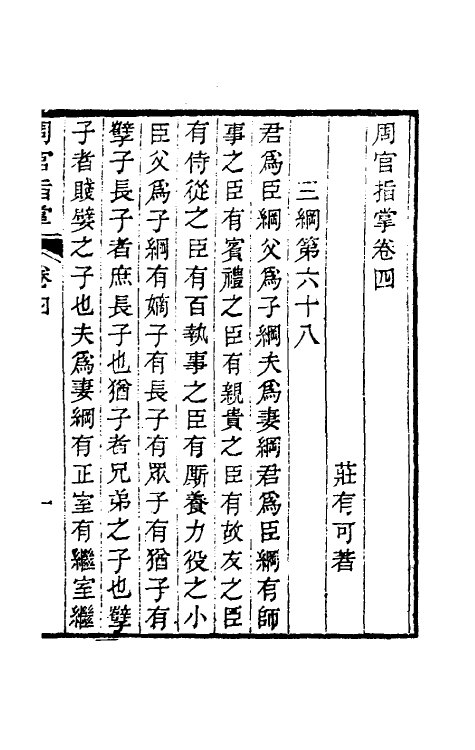 周官指掌卷四
莊有可著
三綱第六十八
君爲臣綱父爲子綱夫爲妻綱君爲臣綱有師
事之臣有賓禮之臣有親貴之臣有故友之臣
有侍從之臣有百執事之臣有厮養力役之小
臣父爲子綱有嫡子有長子有眾子有猶子有
孽子長子者庶長子也猶子者兄弟之子也孽
子者賤孽之子也夫爲妻綱有正室有繼室繼
周官指掌
卷四
一